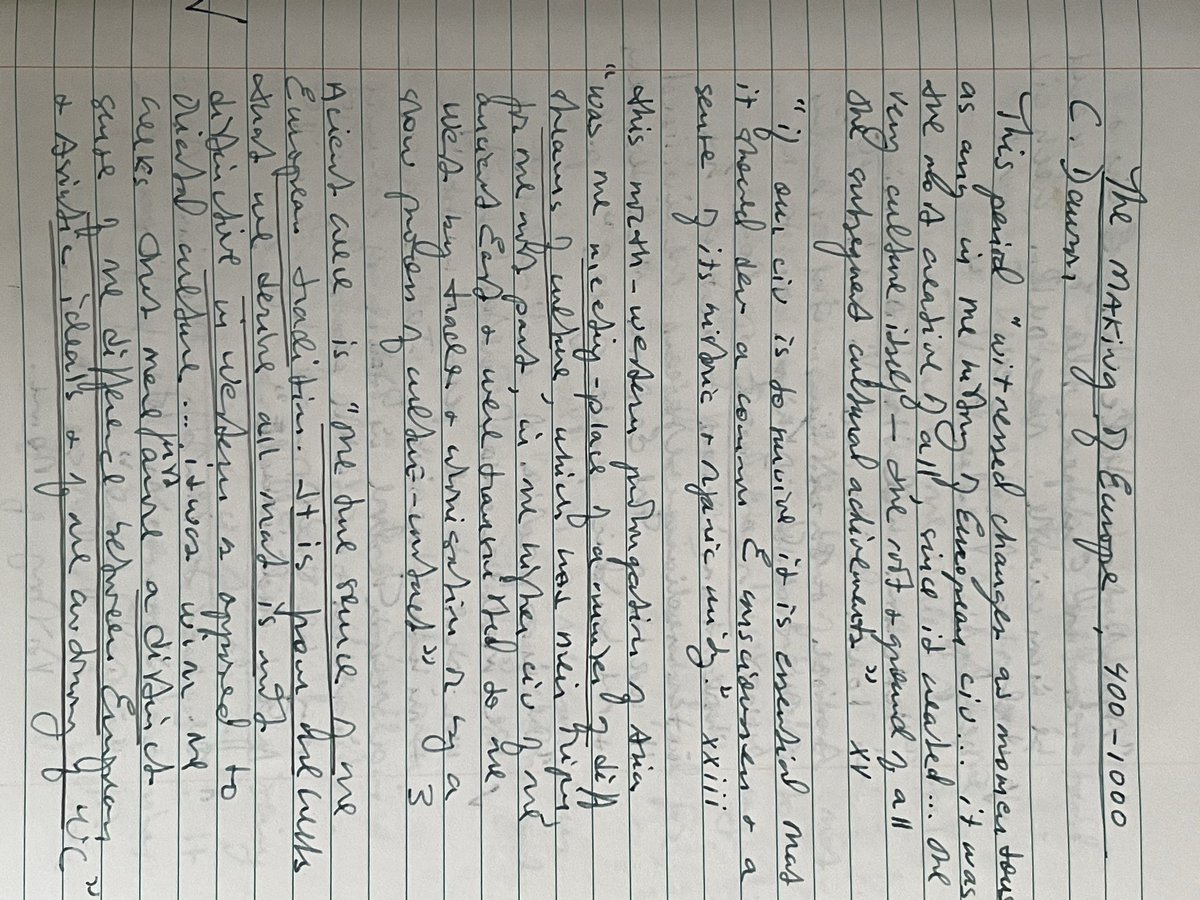 The MAKing of Europe, 400-1000
C. Dawson
This period "witnessed changes as momentous
as any in the history of European civ... it was
the most creative of all, since it created... the
very culture itself – the root & ground of all
the subsequent cultural achievements" XV
"if our civ is to survive it is essential that
it should dev a common E consciousness & a
sense of its historic & organic unity." xxiii
this north-western prolongation of Asia
"was the meeting-place of a number of diff
streams of culture, which had their origin,
for the most part, in the higher civ of the
ancient East & were transmitted to the
West by trade & colonisation or by a
slow process of culture-contact" 3
Ancient Greece is "the true source of the
European tradition. It is from the Greeks
that we derive all that is most
distinctive in Western as opposed to
Oriental culture... it was with the
Greeks that there first arose a distinct
sense of the difference between European
& Asiatic ideals & of the autonomy of WC"